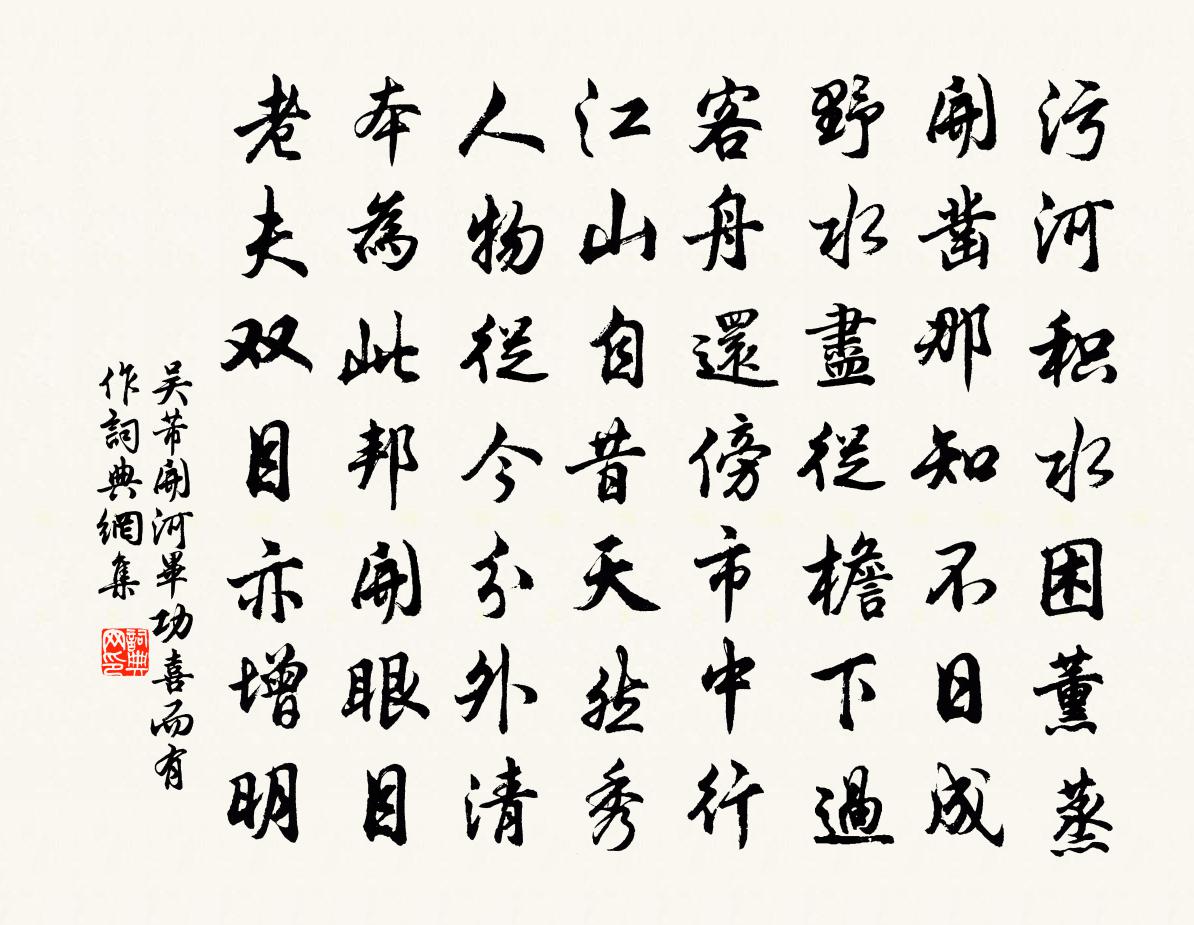 污河积水困薰蒸
開凿那知不日成
野水盡從檐下過
客舟還傍市中行
江山自昔天然秀
人物從今分外清
本為此邦開眼目
老夫双目亦增明
吴芾開河畢功喜而有
作詞典網集
詞典网印